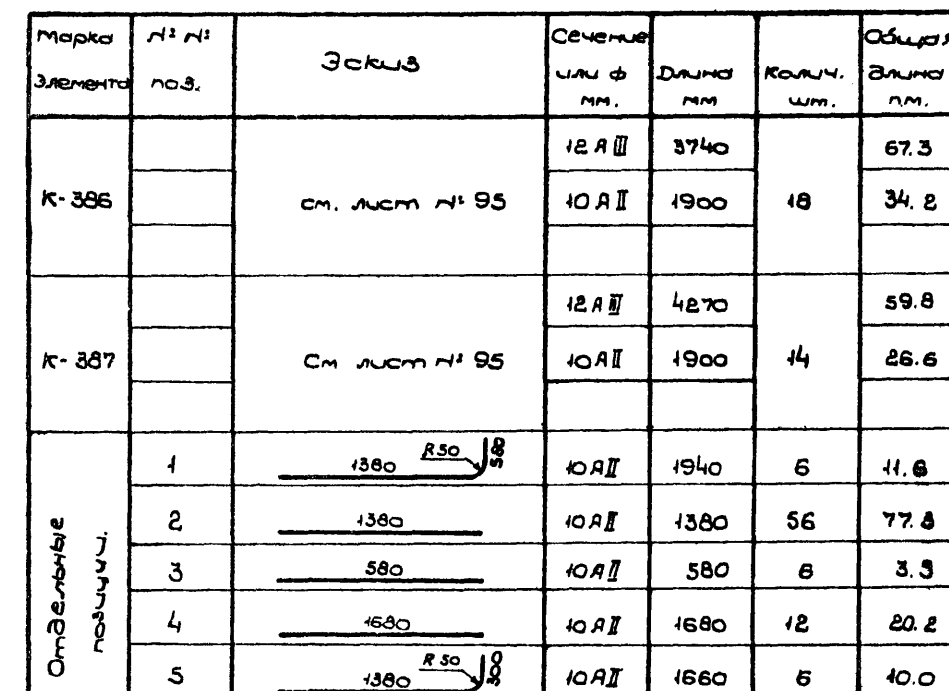 Марка Элемента №№ поз. Эскиз Сечение или ф мм. Длина мм Колич. шт. Общая длина п.м.
12 А III 3740 67.3
К-386 см. лист № 95 10 А II 1900 18 34.2
12 А III 4270 59.8
К-387 См лист № 95 10 А II 1900 14 26.6
Отдельные позиции.
1 1380 R50 580 10 А II 1940 6 11.6
2 1380 10 А II 1380 56 77.8
3 580 10 А II 580 6
4 1680 10 А II 1680 12 20.2
5 1380 R 50 300 10 А II 1660 6 10.0